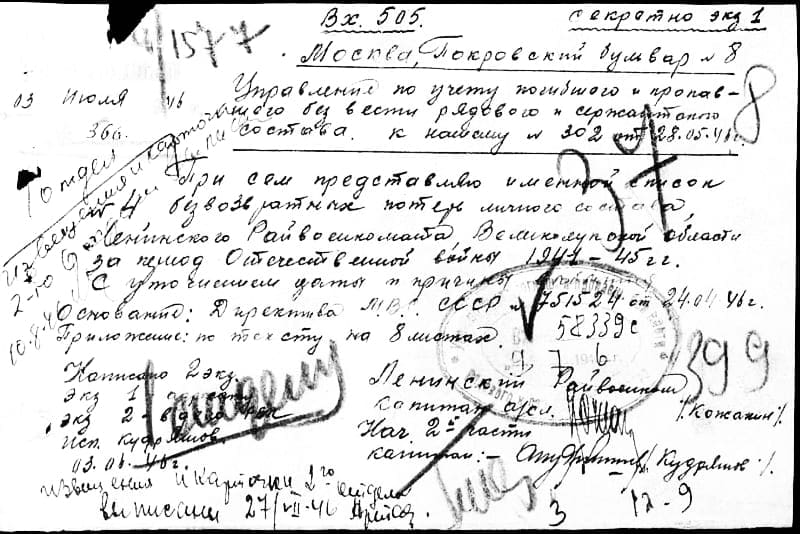 Вх. 505.
секретно экз 1
1577
Москва, Покровский бульвар № 8
03 Июля 46
Управление по учету погибшего и пропав-
шего без вести рядового и сержантского
состава. к нашему № 302 от 28.05.46г.
360.
8
37
1 отдел
извещения и карточки
2-го
10.8.46
При сем представляю именной список
№ 4 безвозвратных потерь личного состава
Ленинского Райвоенкомата, Великолукской области
за период Отечественной войны 1941-45гг.
С уточнением даты и причины
Основание: Директива М.В.С. СССР № 751524 от 24.04.46г.
Приложение: по тексту на 8 листах.
58339с
9 7 6
399
Написано 2 экз
экз 1
экз 2 - в дело
Исп. Кудряшов
03.06.46г.
1 отделу
Ленинский Райвоенком
капитан а/сл. /Кожанин/.
Нач. 2й части
капитан:- /Кудряшов/.
извещения и карточки 2го отдела
выписаны 27/VII-46
3
12-9